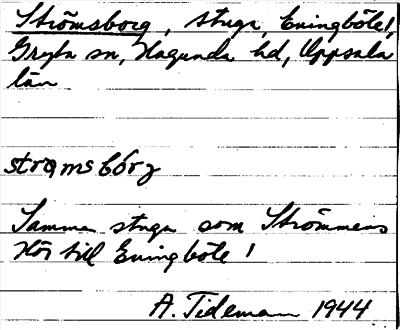 Strömsborg, stuga, Eningböle!,
Gryta sn, Hagunda hd, Uppsala
län
strọmsbór̨
Samma stuga som Strömmens
Hör till Eningböle!
A. Tideman 1944